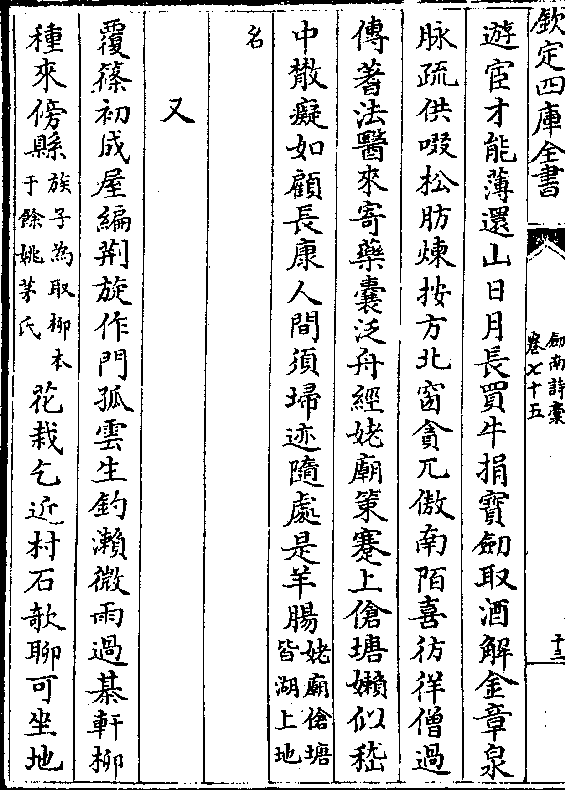 欽定四庫全書
劍南詩稾
卷七十五
十三
遊宦才能薄還山日月長買牛捐寶劒取酒解金章泉
脉疏供啜松肪煉按方北窗貪兀傲南陌喜彷徉僧過
傳著法醫來寄藥囊泛舟經姥廟策蹇上傖塘嬾似嵇
中散癡如顧長康人間須埽迹隨處是羊腸姥廟傖塘皆湖上地
名
又
覆篠初成屋編荆旋作門孤雲生釣瀬微雨過棊軒柳
種來傍縣族子為取柳本于餘姚茅氏花栽乞近村石欹聊可坐地